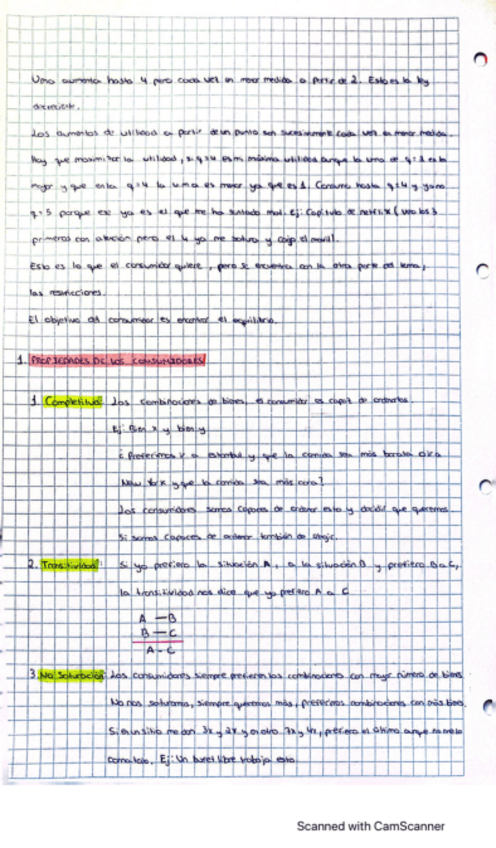 Umg aumenta hasta 4 pero cada vez en menor medida a partir de 2. Esto es la ley
decreciente.
Los aumentos de utilidad a partir de un punto son sucesivamente cada vez en menor medida.
Hay que maximizar la utilidad, si q=4 es mi máxima utilidad aunque la umg de q=3 es la
mayor y que en la q=4 la umg es menor ya que es 1. Consumo hasta q=4 y no
q=5 porque ese ya es el que me ha sentado mal. Ej: Capítulo de netflix (veo los 3
primeros con atención pero el 4 ya me aburro y cojo el movil).
Esto es lo que el consumidor quiere, pero se encuentra con la otra parte del tema,
las restricciones.
El objetivo del consumidor es encontrar el equilibrio.
1. PROPIEDADES DE LOS CONSUMIDORES
1. Completitud: Las combinaciones de bienes, el consumidor es capaz de ordenarlas.
Ej: Bien x y bien y
¿Preferimos ir a Estambul y que la comida sea más barata o ir a
New York y que la comida sea más cara?
Los consumidores somos capaces de ordenar esto y decidir que queremos.
Si somos capaces de ordenar también de elegir.
2. Transitividad: Si yo prefiero la situación A, a la situación B y prefiero B a C,
la transitividad nos dice que yo prefiero A a C
A — B
B — C
A - C
3. No Saturación: Los consumidores siempre prefieren las combinaciones con mayor número de bienes.
No nos saturamos, siempre queremos más, preferimos combinaciones con más bienes.
Si en un sitio me dan 3x y 2x y en otro 7x y 4x, prefiero el último aunque no me lo
coma todo. Ej: Un buffet libre trabaja esto.
Scanned with CamScanner